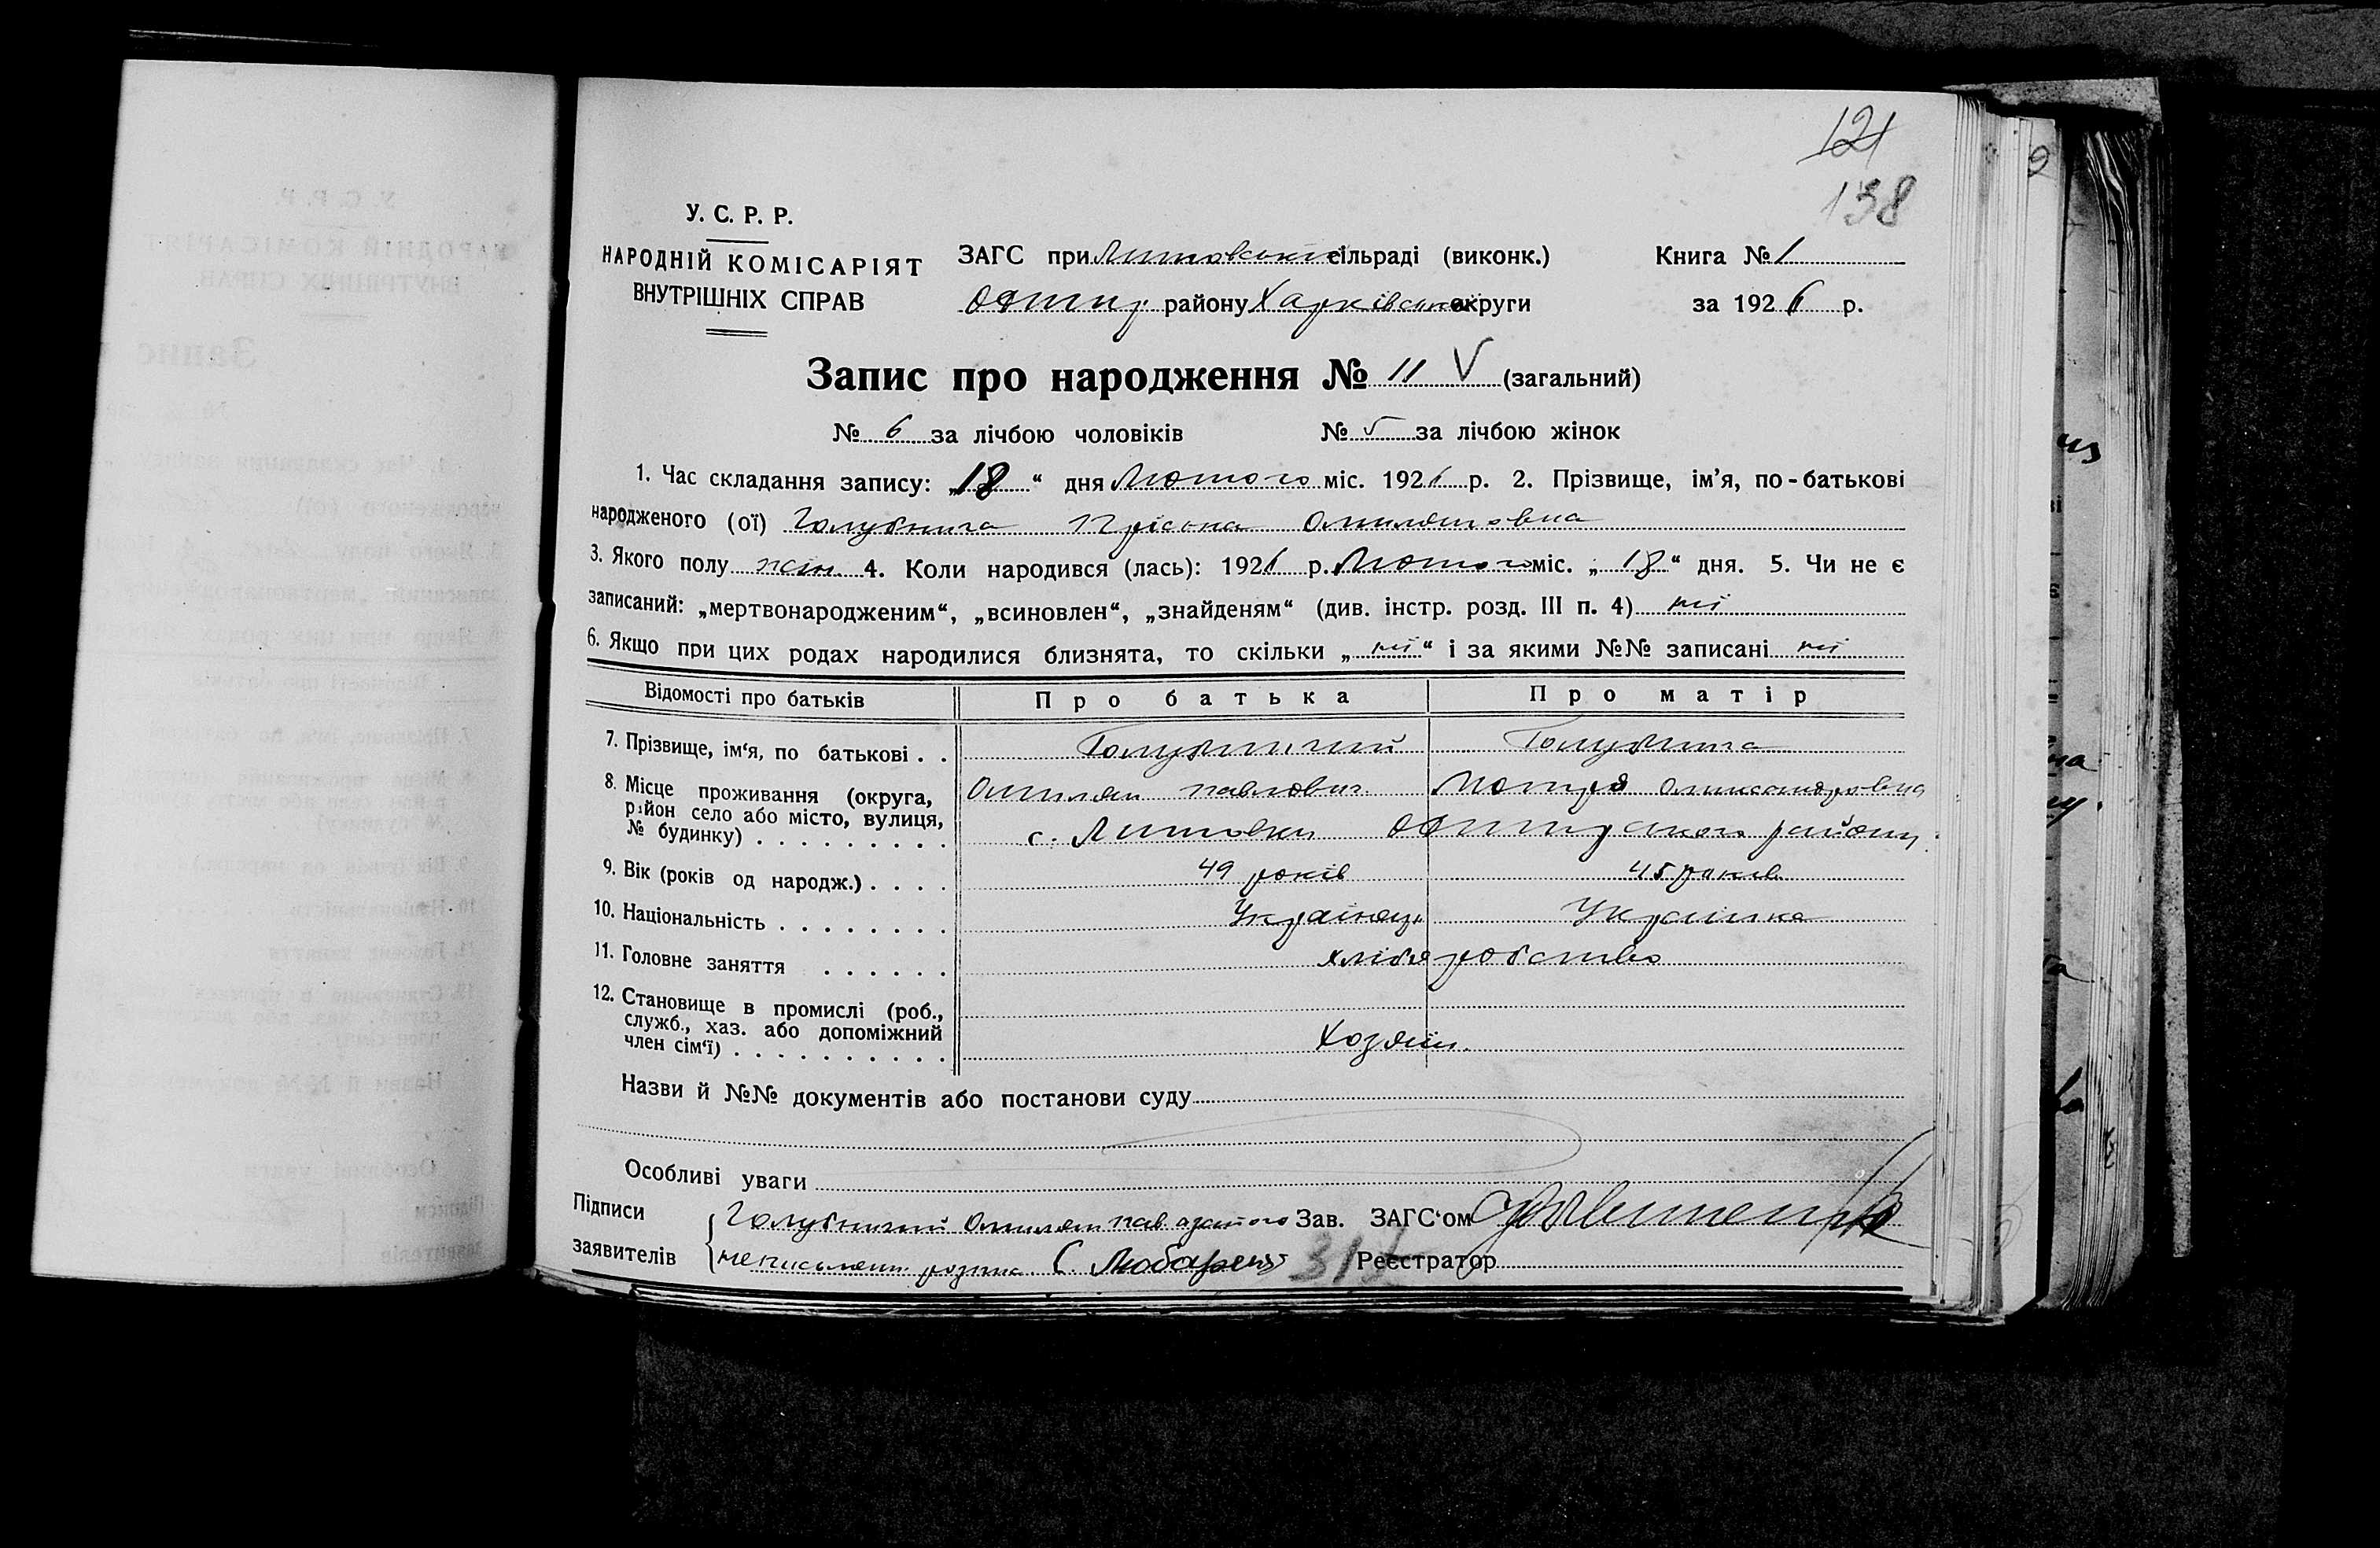 121
138
У. С. Р. Р.
НАРОДНІЙ КОМІСАРІЯТ
ВНУТРІШНІХ СПРАВ
ЗАГС при Литовській сільраді (виконк.)
району Харківської округи
Книга № 1
за 1926 р.
Запис про народження № 11 V (загальний)
№ 6 за лічбою чоловіків № 5 за лічбою жінок
1. Час складання запису: „18“ дня Лютого міс. 1926 р. 2. Прізвище, ім’я, по-батькові
народженого (ої) Голубнича Омиляновна
3. Якого полу жін. 4. Коли народився (лась): 1926 р. Лютого міс. „18“ дня. 5. Чи не є
записаний: „мертвонародженим“, „всиновлен“, „знайденям“ (див. інстр. розд. III п. 4) ні
6. Якщо при цих родах народилися близнята, то скільки „ні“ і за якими №№ записані ні
Відомості про батьків Про батька Про матір
7. Прізвище, ім‘я, по батькові . . Голубничий Голубнича
8. Місце проживання (округа, Омилян павлович Мотря
район село або місто, вулиця,
№ будинку) . . . . . . . . . с. Литовки району
9. Вік (років од народж.) . . . . 49 років 45 років
10. Національність . . . . . . . . Українець Українка
11. Головне заняття . . . . . . хліборобство
12. Становище в промислі (роб.,
служб., хаз. або допоміжний
член сім‘ї) . . . . . . . . . . Хозяїн.
Назви й №№ документів або постанови суду
Особливі уваги
Підписи Голубничий Омилян Зав. ЗАГС‘ом
заявителів С. Любарець Реєстратор